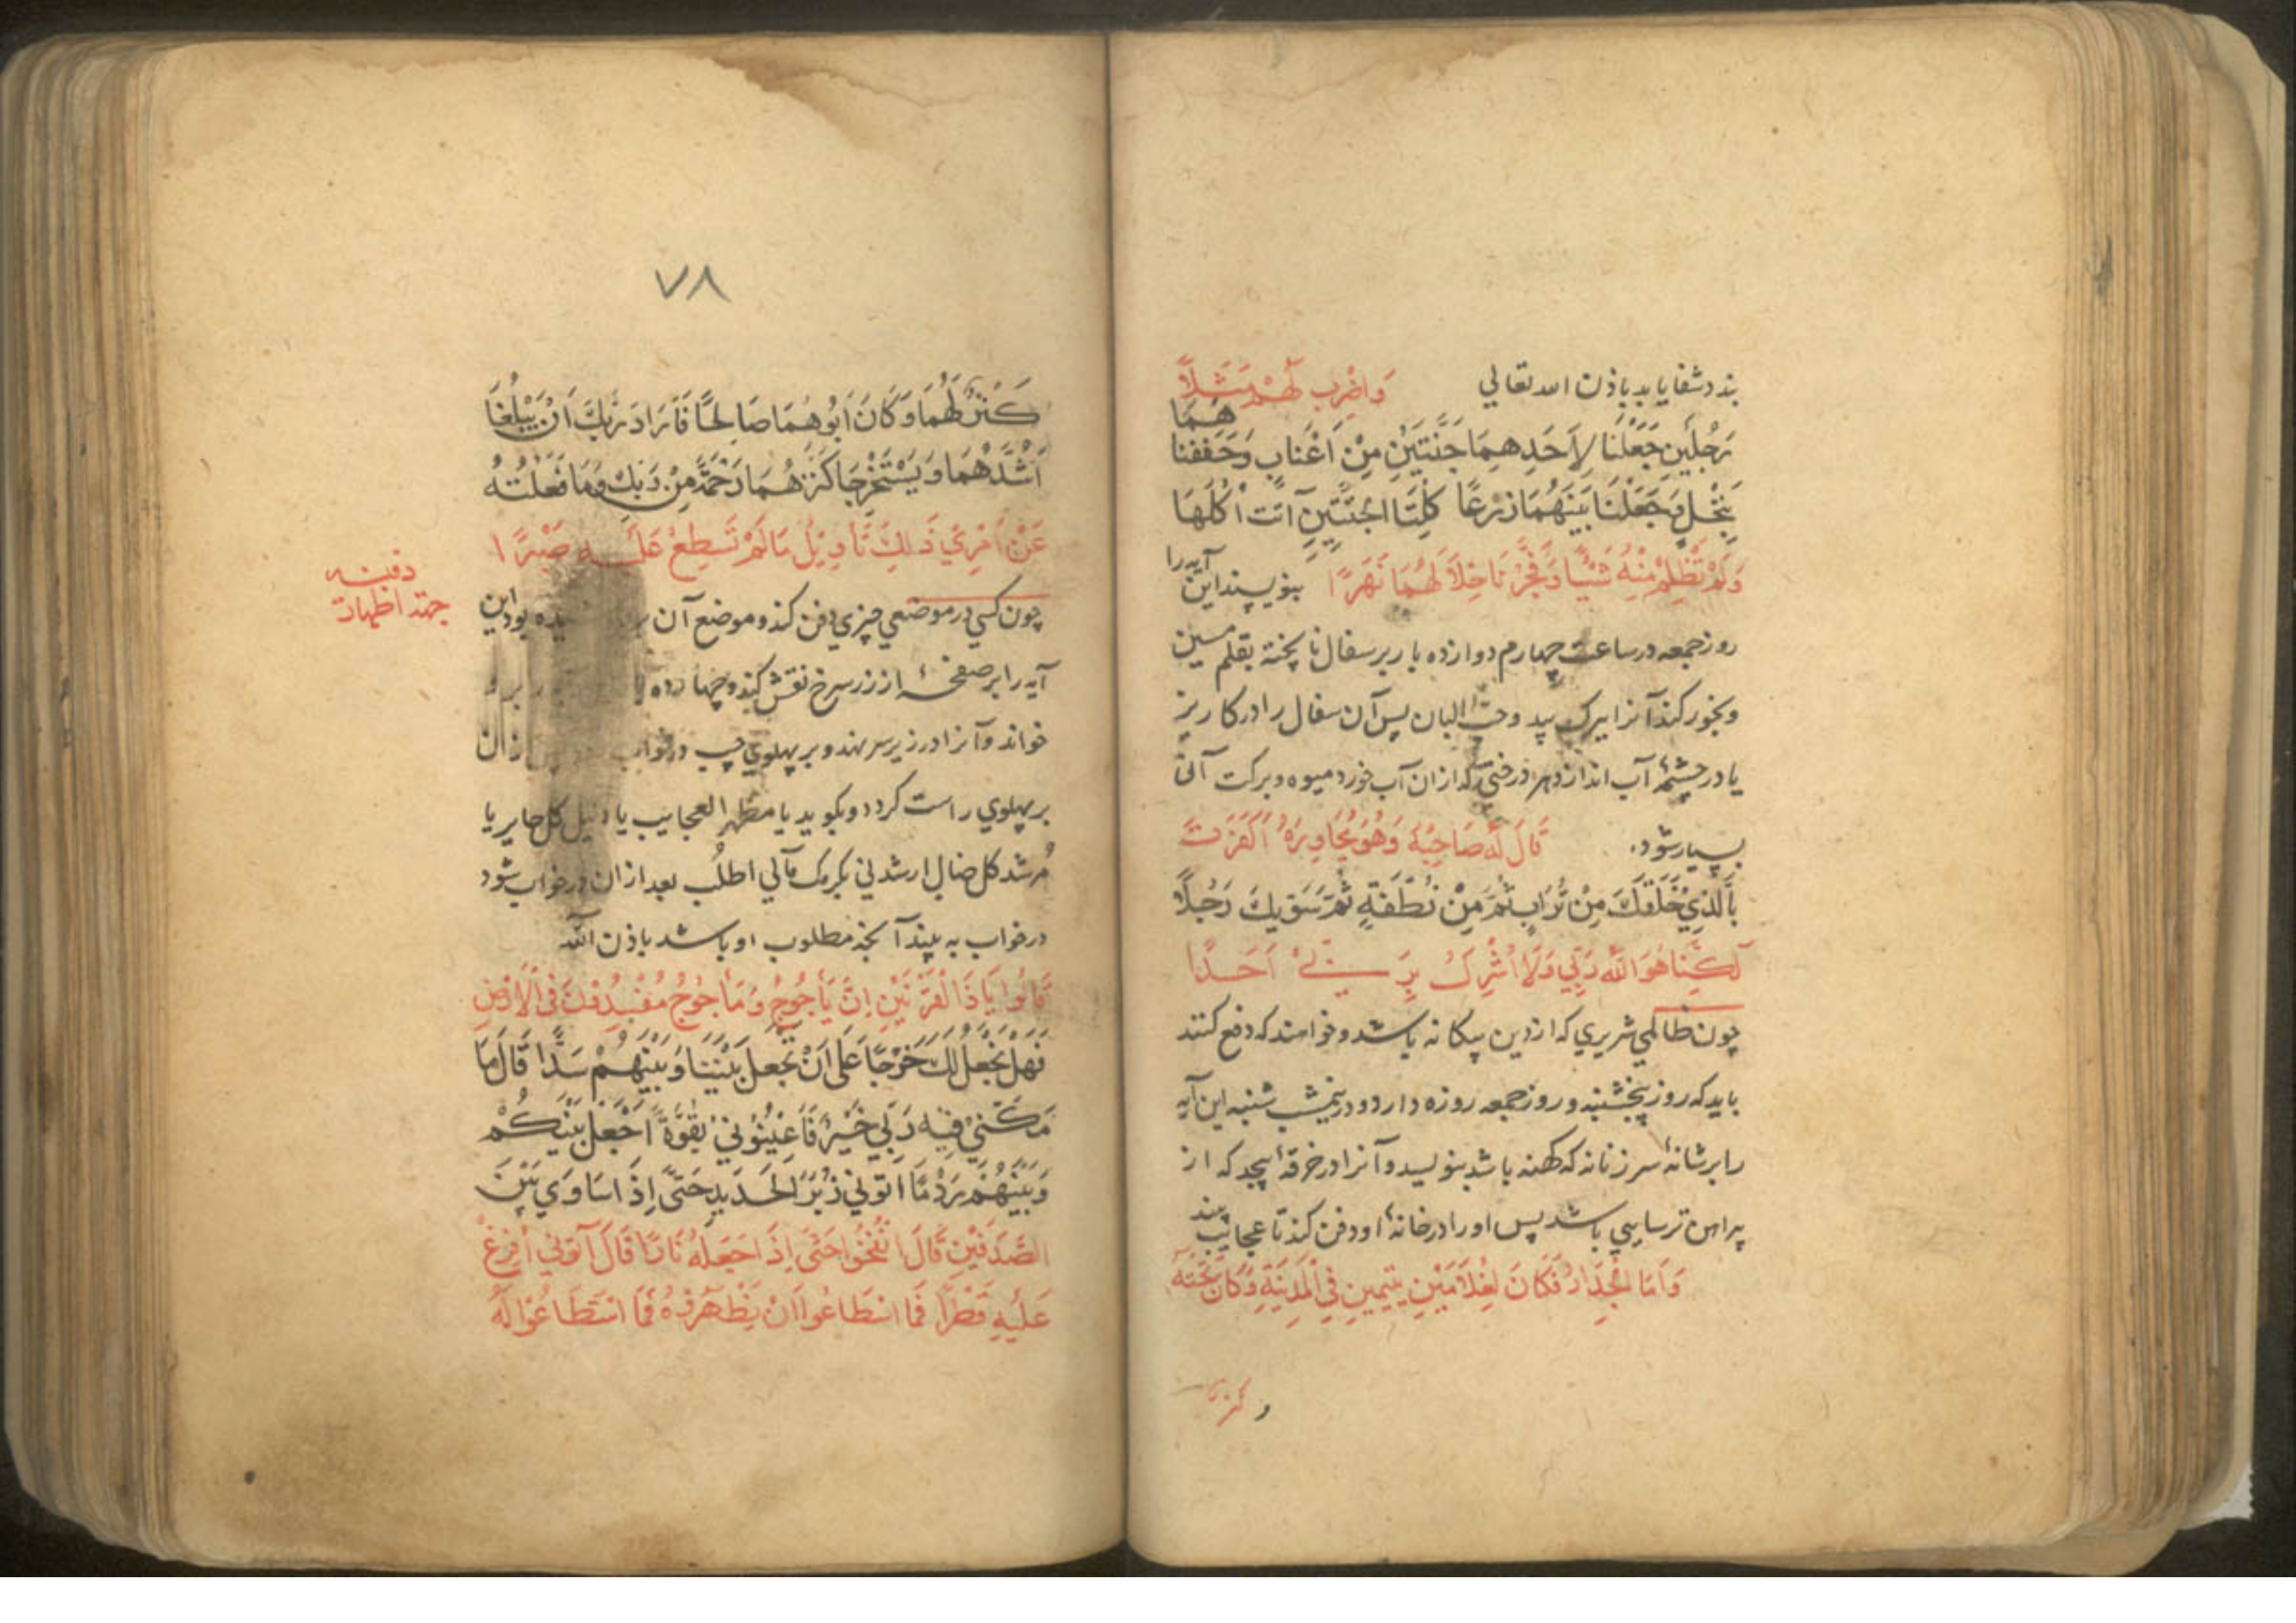 بندد شفا یابد باذن الله تعالی وَاضْرِبْ لَهُمْ مَثَلاً
رَجُلَيْنِ جَعَلْنَا لِاَحَدِهِمَا جَنَّتَيْنِ مِنْ اَعْنَابٍ وَحَفَفْنَا هُمَا
بِنَخْلٍ وَجَعَلْنَا بَيْنَهُمَا زَرْعًا كِلْتَا الْجَنَّتَيْنِ آتَتْ اُكُلَهَا
وَلَمْ تَظْلِمْ مِنْهُ شَيْئًا وَفَجَّرْنَا خِلَالَهُمَا نَهَرًا بنویسند این آیه را
روز جمعه در ساعت چهارم دوازده بار بر سفال نا پخته بقلم مسین
و بخور کند آنرا ببرک بید و حب البان پس آن سفال را در کاریز
یا در چشمهٔ آب اندازد هر درختی که از ان آب خورد میوه و برکت آن
بسیار شود. قَالَ لَهُ صَاحِبُهُ وَهُوَ يُحَاوِرُهُ اَكَفَرْتَ
بِالَّذِي خَلَقَكَ مِنْ تُرَابٍ ثُمَّ مِنْ نُطْفَةٍ ثُمَّ سَوّيكَ رَجُلًا
لٰكِنَّا هُوَ اللّٰهُ رَبِّي وَلَا اُشْرِكُ بِرَبِّي اَحَدًا
چون ظالمی شریری که از دین بیکانه باشد و خواهند که دفع کنند
باید که روز پنجشنبه و روز جمعه روزه دارد و در نیمشب شنبه این آیه
را بر شانهٔ سر زنانه که کهنه باشد بنویسد و آنرا در خرقهٔ پیچد که از
پیراهن ترسایی باشد پس او را در خانهٔ او دفن کند تا عجایب بیند
وَاَمَّا الْجِدَارُ فَكَانَ لِغُلَامَيْنِ يَتِيمَيْنِ فِي الْمَدِينَةِ وَكَانَ تَحْتَهُ
كنز
٧٨
كَنْزٌ لَهُمَا وَكَانَ اَبُوهُمَا صَالِحًا فَاَرَادَ رَبُّكَ اَنْ يَبْلُغَا
اَشُدَّهُمَا وَيَسْتَخْرِجَا كَنْزَهُمَا رَحْمَةً مِنْ رَبِّكَ وَمَا فَعَلْتُهُ
عَنْ اَمْرِي ذَلِكَ تَأْوِيلُ مَا لَمْ تَسْطِعْ عَلَيْهِ صَبْرًا
دفینه
جهة اظهار
چون کسی در موضعی چیزی دفن کند و موضع آن بود این
آیه را بر صفحهٔ از زر سرخ نقش کند و چهارده
خواند و آنرا در زیر سر نهد و بر پهلوی چپ در خواب از ان
بر پهلوی راست کردد و بکوید یا مظهر العجایب یا دلیل کل حایر یا
مُرشد کل ضال ارشدنی بکرمک مآلی اطلُب بعد از ان در خواب شود
در خواب به بیند آنچه مطلوب او باشد باذن الله
قَالُوا يَا ذَا الْقَرْنَيْنِ اِنَّ يَأْجُوجَ وَمَأْجُوجَ مُفْسِدُونَ فِي الْاَرْضِ
فَهَلْ نَجْعَلُ لَكَ خَرْجًا عَلَى اَنْ تَجْعَلَ بَيْنَنَا وَبَيْنَهُمْ سَدًّا قَالَ مَا
مَكَّنِّي فِيهِ رَبِّي خَيْرٌ فَاَعِينُونِي بِقُوَّةٍ اَجْعَلْ بَيْنَكُمْ
وَبَيْنَهُمْ رَدْمًا اتُونِي زُبَرَ الْحَدِيدِ حَتَّى اِذَا سَاوَى بَيْنَ
الصَّدَفَيْنِ قَالَ انْفُخُوا حَتَّى اِذَا جَعَلَهُ نَارًا قَالَ آتُونِي اُفْرِغْ
عَلَيْهِ قِطْرًا فَمَا اسْطَاعُوا اَنْ يَظْهَرُوهُ فَمَا اسْتَطَاعُوا لَهُ